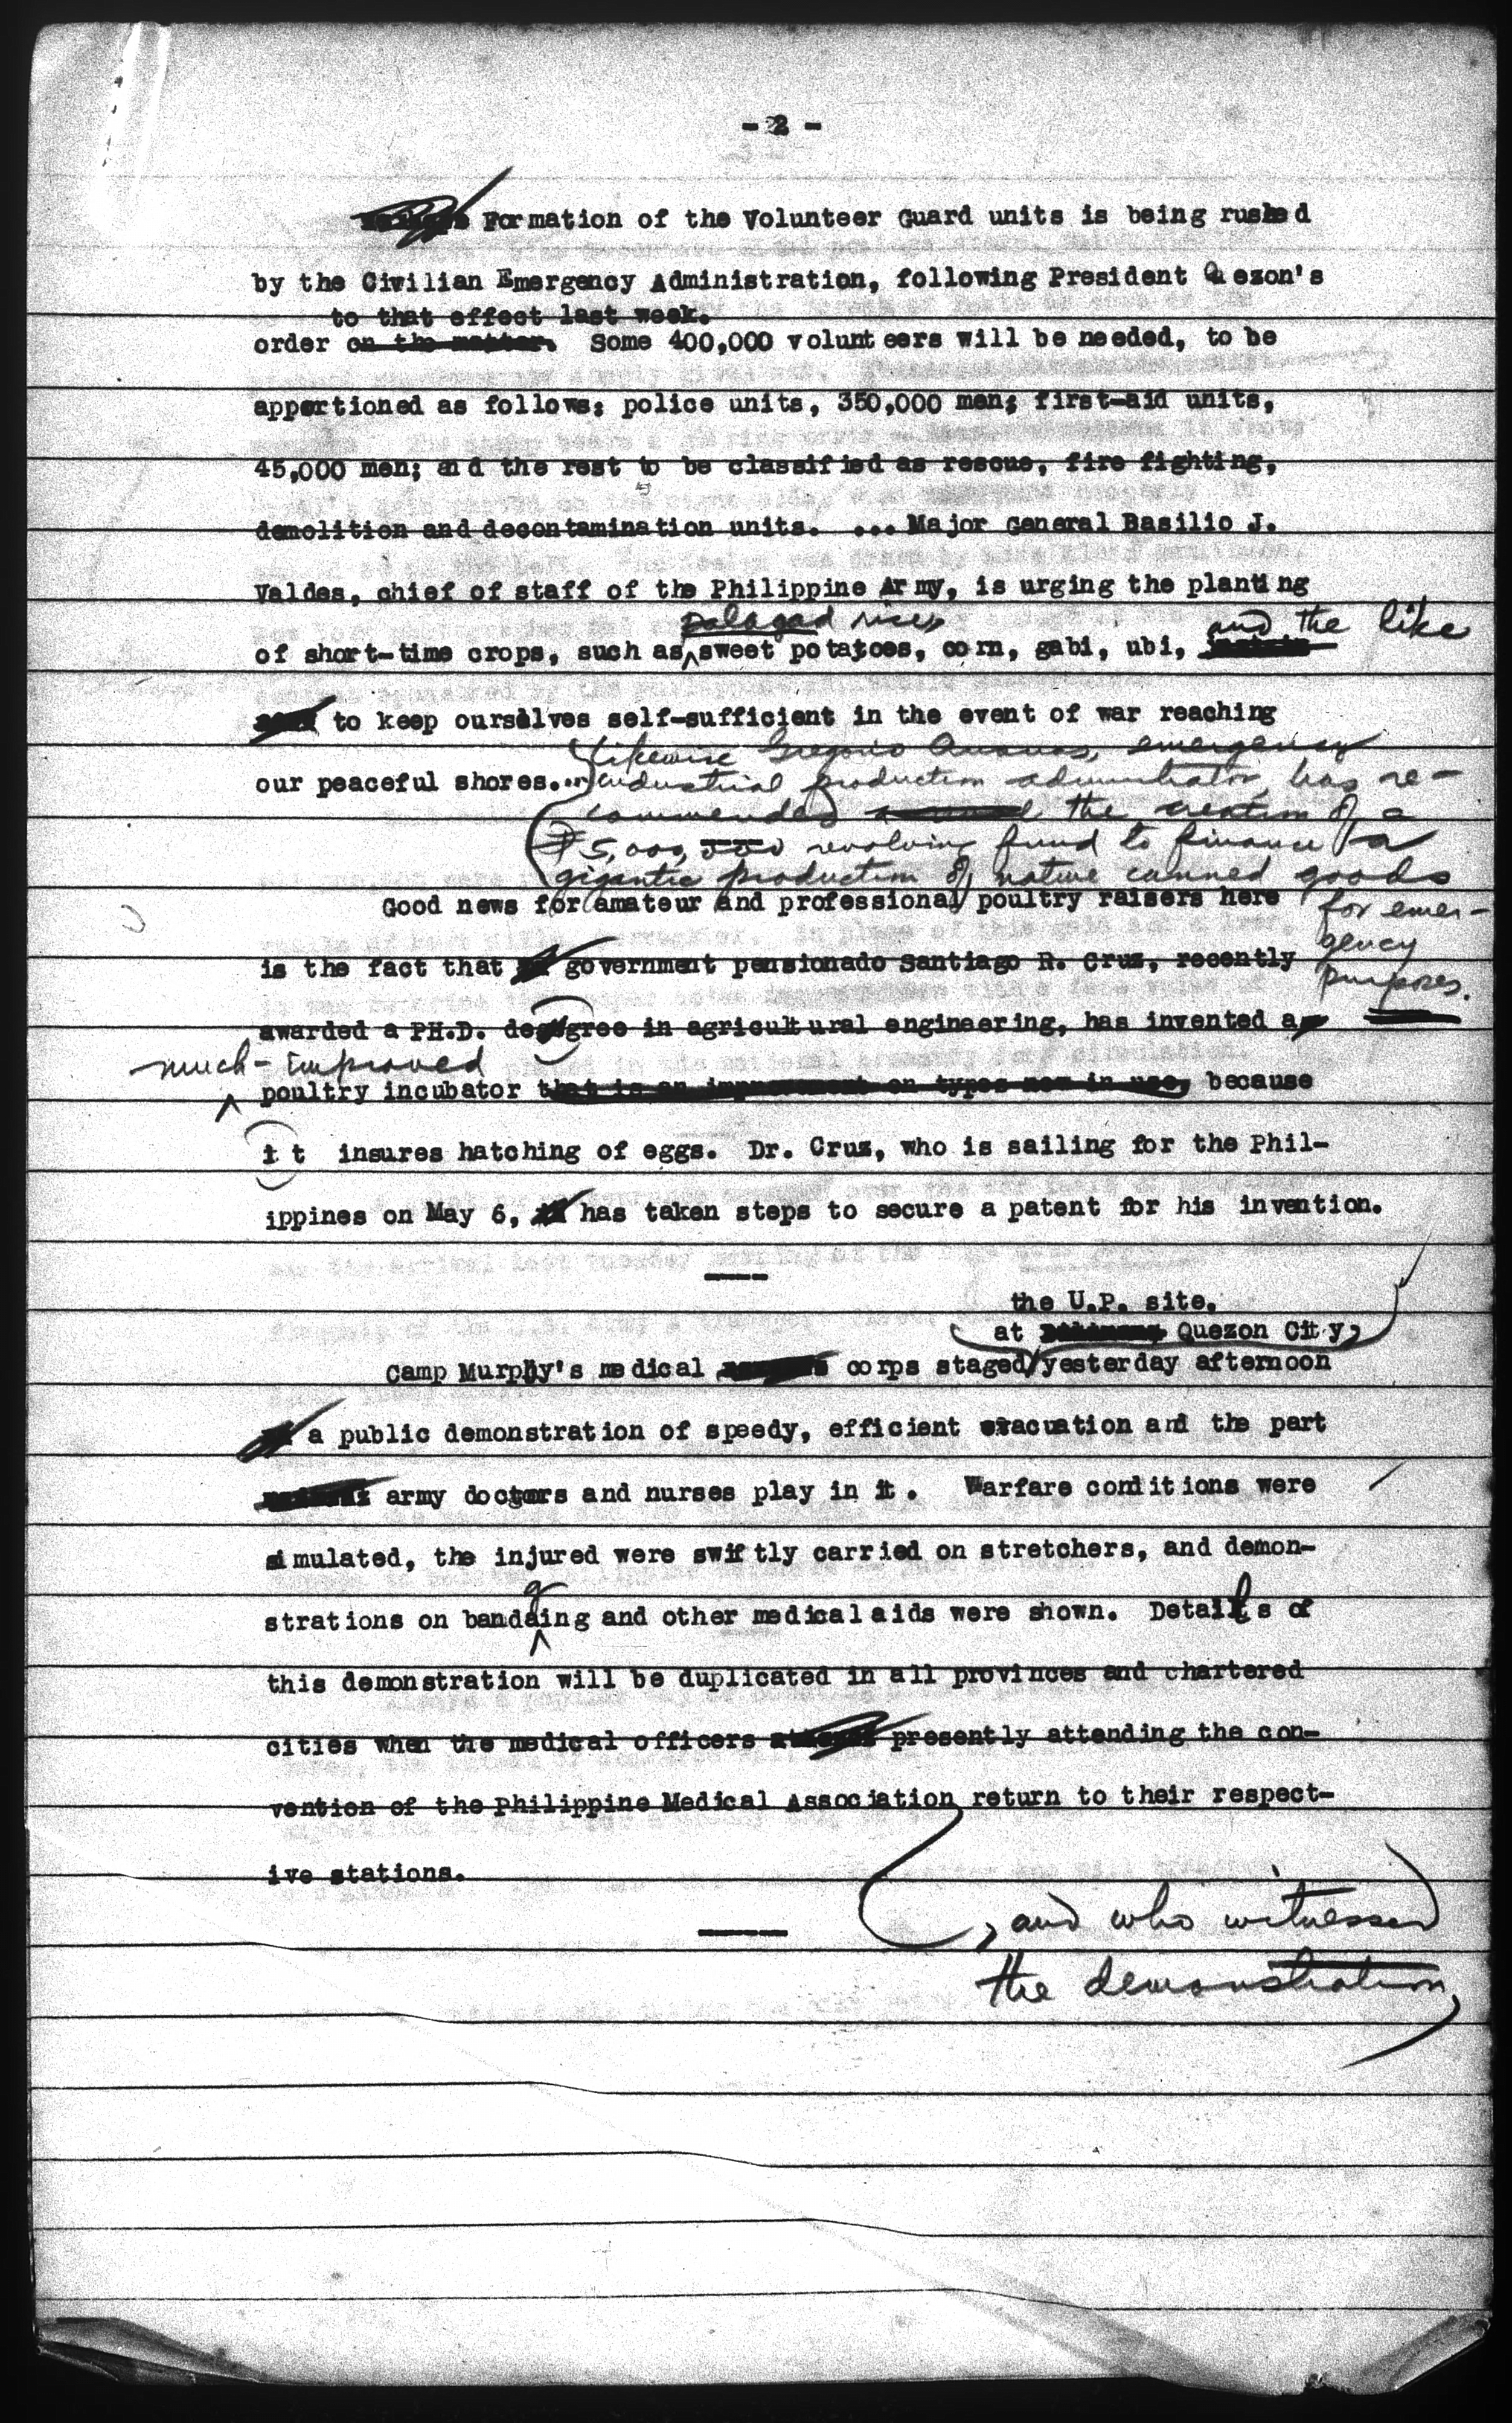 - 2 -
Formation of the Volunteer Guard units is being rushed
by the Civilian Emergency Administration, following President Quezon's
to that effect last week.
order on the matter. Some 400,000 volunteers will be needed, to be
apportioned as follows: police units, 350,000 men; first-aid units,
45,000 men; and the rest to be classified as rescue, fire fighting,
demolition and decontamination units. ... Major General Basilio J.
Valdes, chief of staff of the Philippine Army, is urging the planting
palagad rice, and the like
of short-time crops, such as sweet potatoes, corn, gabi, ubi,
to keep ourselves self-sufficient in the event of war reaching
Likewise Gregorio emergency
our peaceful shores... industrial production administrator, has re-
commended the creation of a
₱5,000,000 revolving fund to finance a
gigantic production of native canned goods
Good news for amateur and professional poultry raisers here
for emer-
gency
is the fact that government pensionado Santiago R. Cruz, recently
purposes.
awarded a PH.D. degree in agricultural engineering, has invented a
much-improved
poultry incubator that is an improvement on types now in use, because
it insures hatching of eggs. Dr. Cruz, who is sailing for the Phil-
ippines on May 6, has taken steps to secure a patent for his invention.
the U.P. site,
at Quezon City,
Camp Murphy's medical corps staged yesterday afternoon
a public demonstration of speedy, efficient evacuation and the part
army doctors and nurses play in it. Warfare conditions were
simulated, the injured were swiftly carried on stretchers, and demon-
g
strations on bandaing and other medical aids were shown. Details of
this demonstration will be duplicated in all provinces and chartered
cities when the medical officers presently attending the con-
vention of the Philippine Medical Association return to their respect-
ive stations.
, and who witnessed
the demonstration,